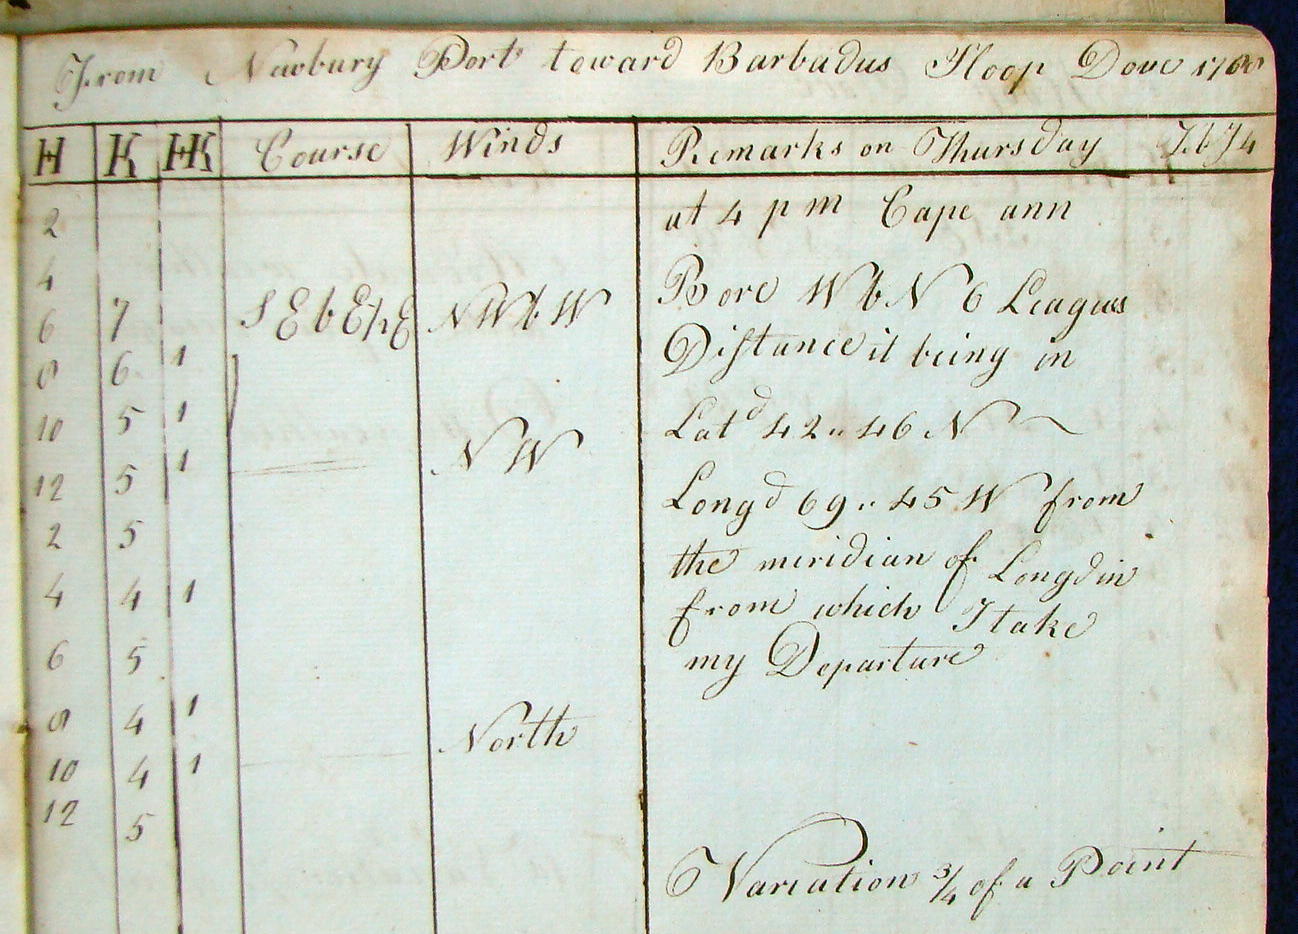 From Newbury Port toward Barbadus Sloop Dove
H K HK Course Winds Remarks on Thursday
2 at 4 p m Cape ann
4 Bore W b N 6 Leagues
6 7 S E b E NW b W
8 6 1 Distance it being in
10 5 1 Latd 42..46 N
12 5 1 NW
Longd 69..45 W from
2 5 the meridian of Longdin
4 4 1 from which I take
6 5 my Departure
8 4 1 North
10 4 1
12 5
Variation 3/4 of a Point